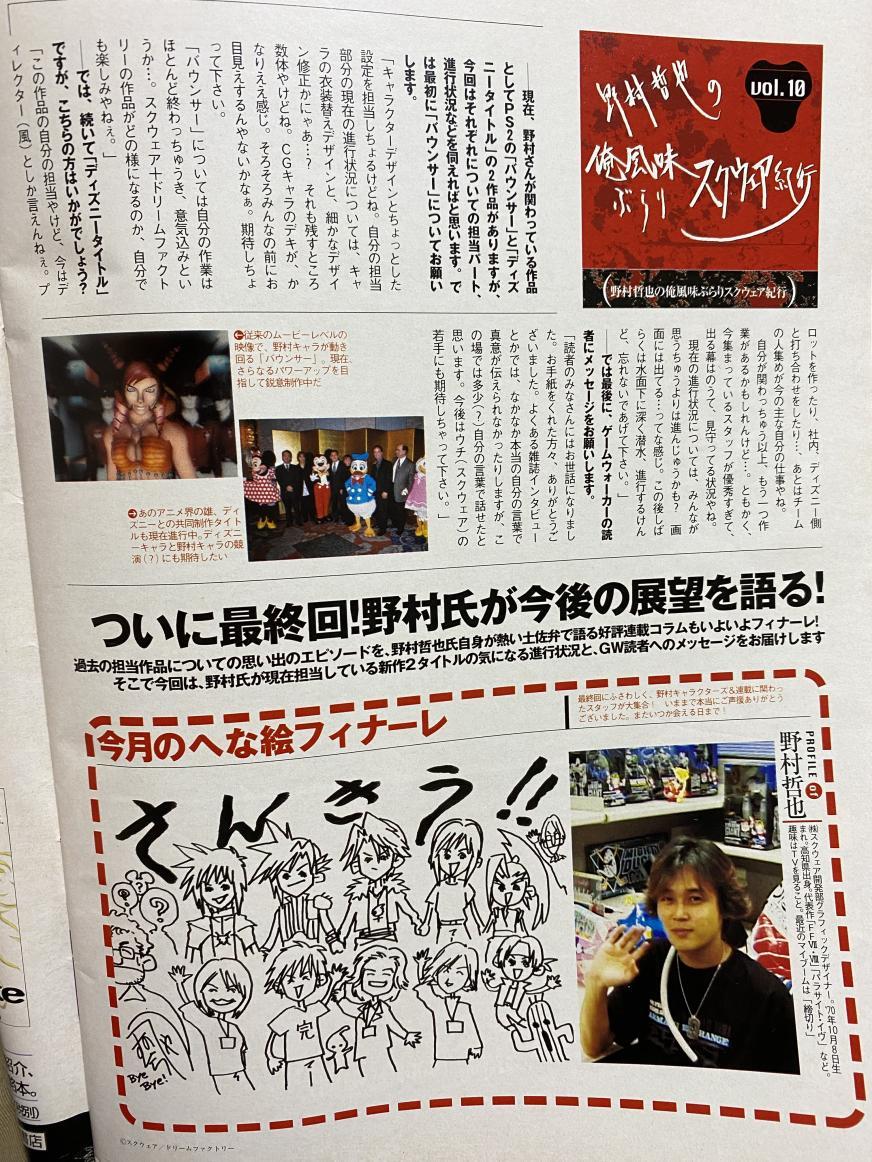 vol.10
野村哲也の
俺風味
ぶらり
スクウェア紀行
(野村哲也の俺風味ぶらりスクウェア紀行)
――現在、野村さんが関わっている作品
としてPS2の「バウンサー」と「ディズ
ニータイトル」の2作品がありますが、
今回はそれぞれについての担当パート、
進行状況などを伺えればと思います。で
は最初に「バウンサー」についてお願い
します。
「キャラクターデザインとちょっとした
設定を担当しちょるけどね。自分の担当
部分の現在の進行状況については、キャ
ラの衣装替えデザインと、細かなデザイ
ン修正かにゃあ…?それも残すところ
数体やけどね。CGキャラのデキが、か
なりええ感じ。そろそろみんなの前にお
目見えするんやないかなぁ。期待しちょ
って下さい。
「バウンサー」については自分の作業は
ほとんど終わっちゅうき、意気込みとい
うか…。スクウェア+ドリームファクト
リーの作品がどの様になるのか、自分で
も楽しみやねぇ。」
――では、続いて「ディズニータイトル」
ですが、こちらの方はいかがでしょう?
「この作品の自分の担当やけど、今はデ
ィレクター(風)としか言えんねぇ。プ
ロットを作ったり、社内、ディズニー側
と打ち合わせをしたり…、あとはチーム
の人集めが今の主な自分の仕事やね。
自分が関わっちゅう以上、もう一つ作
業があるかもしれんけど…。ともかく、
今集まっているスタッフが優秀すぎて、
出る幕はのうて、見守ってる状況やね。
現在の進行状況については、みんなが
思うちゅうよりは進んじゅうかも?画
面には出てる…ってな感じ。この後しば
らくは水面下に深く潜水、進行するけん
ど、忘れないであげて下さい。」
――では最後に、ゲームウォーカーの読
者にメッセージをお願いします。
「読者のみなさんにはお世話になりまし
た。お手紙をくれた方々、ありがとうご
ざいました。よくある雑誌インタビュー
とかでは、なかなか本当の自分の言葉で
真意が伝えられなかったりしますが、こ
の場では多少(?)自分の言葉で話せたと
思います。今後はウチ(スクウェア)の
若手にも期待しちゃって下さい。」
←従来のムービーレベルの
映像で、野村キャラが動き
回る「バウンサー」。現在、
さらなるパワーアップを目
指して鋭意制作中だ
→あのアニメ界の雄、ディ
ズニーとの共同制作タイト
ルも現在進行中。ディズニ
ーキャラと野村キャラの競
演(?)にも期待したい
ついに最終回!野村氏が今後の展望を語る!
過去の担当作品についての思い出のエピソードを、野村哲也氏自身が熱い土佐弁で語る好評連載コラムもいよいよフィナーレ!
そこで今回は、野村氏が現在担当している新作2タイトルの気になる進行状況と、GW読者へのメッセージをお届けします
今月のへな絵フィナーレ
最終回にふさわしく、野村キャラクターズ&連載に関わっ
たスタッフが大集合! いままで本当にご声援ありがとう
ございました。またいつか会える日まで!
さんきう!!
完
Bye
Bye!
PROFILE of
野村哲也
㈱スクウェア開発部グラフィックデザイナー。'70年10月8日生
まれ。高知県出身。代表作「FFⅦ・Ⅷ」「パラサイト・イヴ」など。
趣味はTVを見ること。最近のマイブームは「繪切り」
©スクウェア/ドリームファクトリー
紹介、
本。